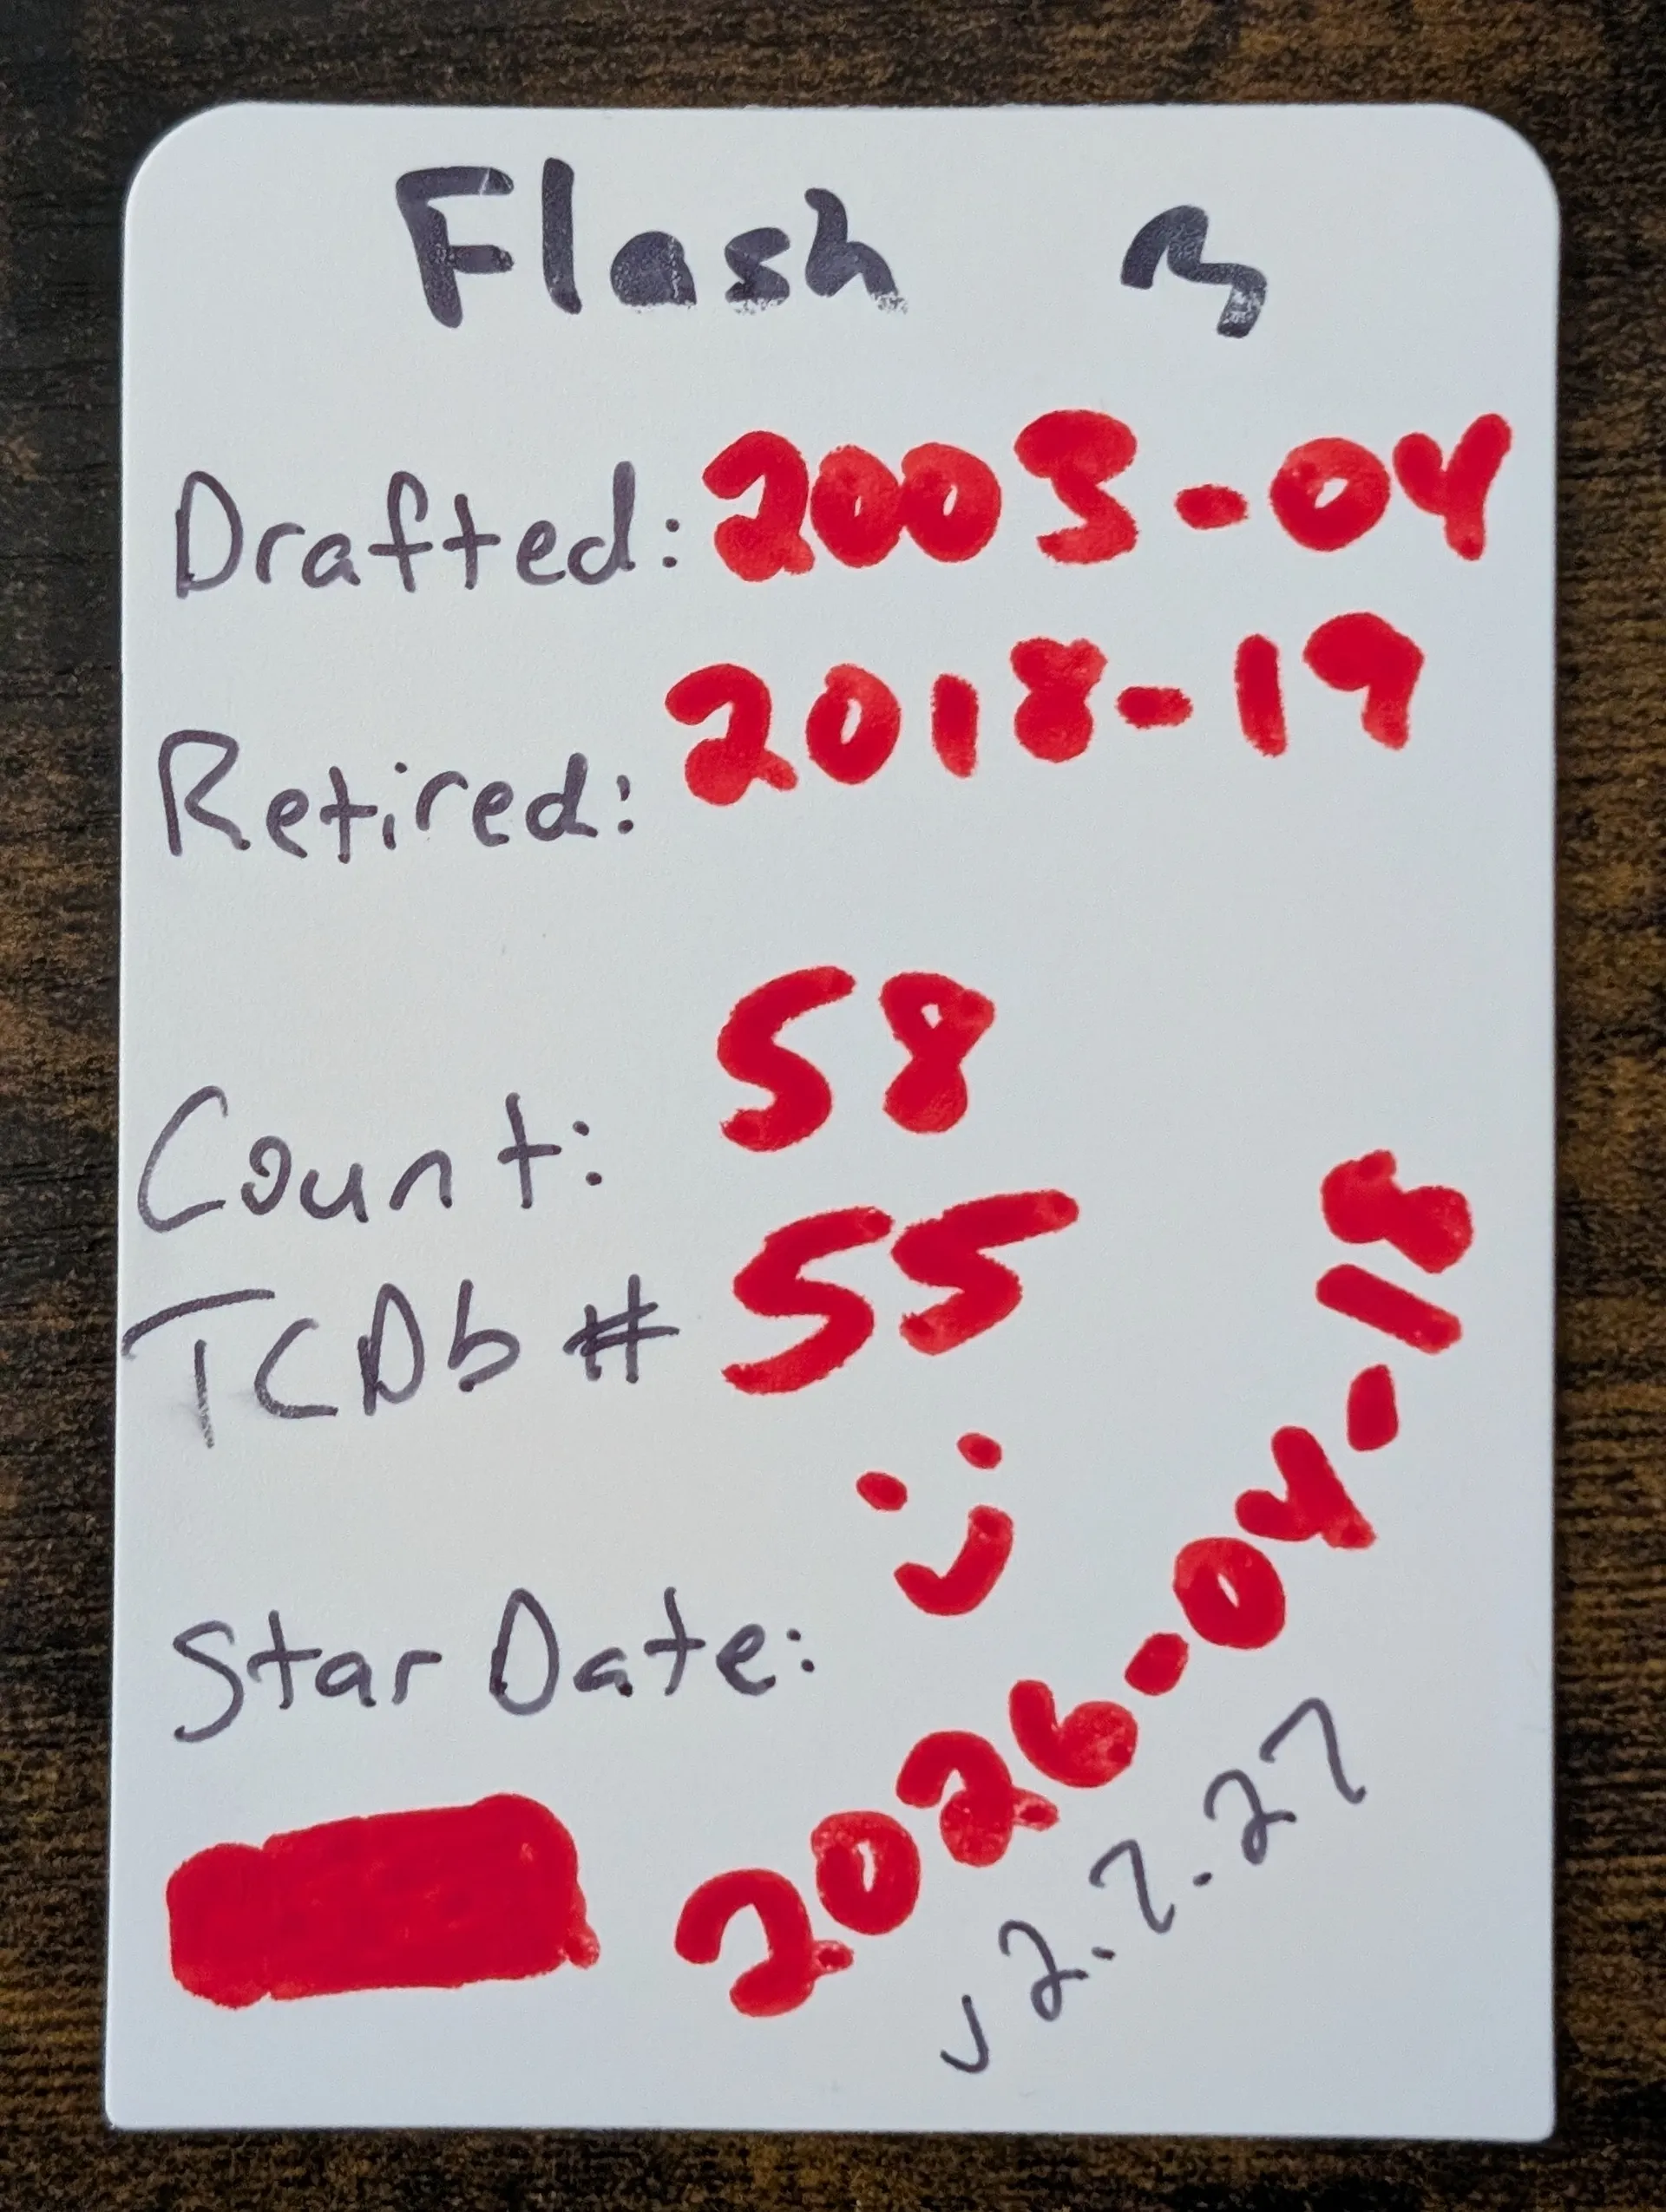 Flash
Drafted: 2003-04
Retired: 2018-19
Count: 58
TCDb # 55
:)
Star Date:
2026-04-18
J2.7.27